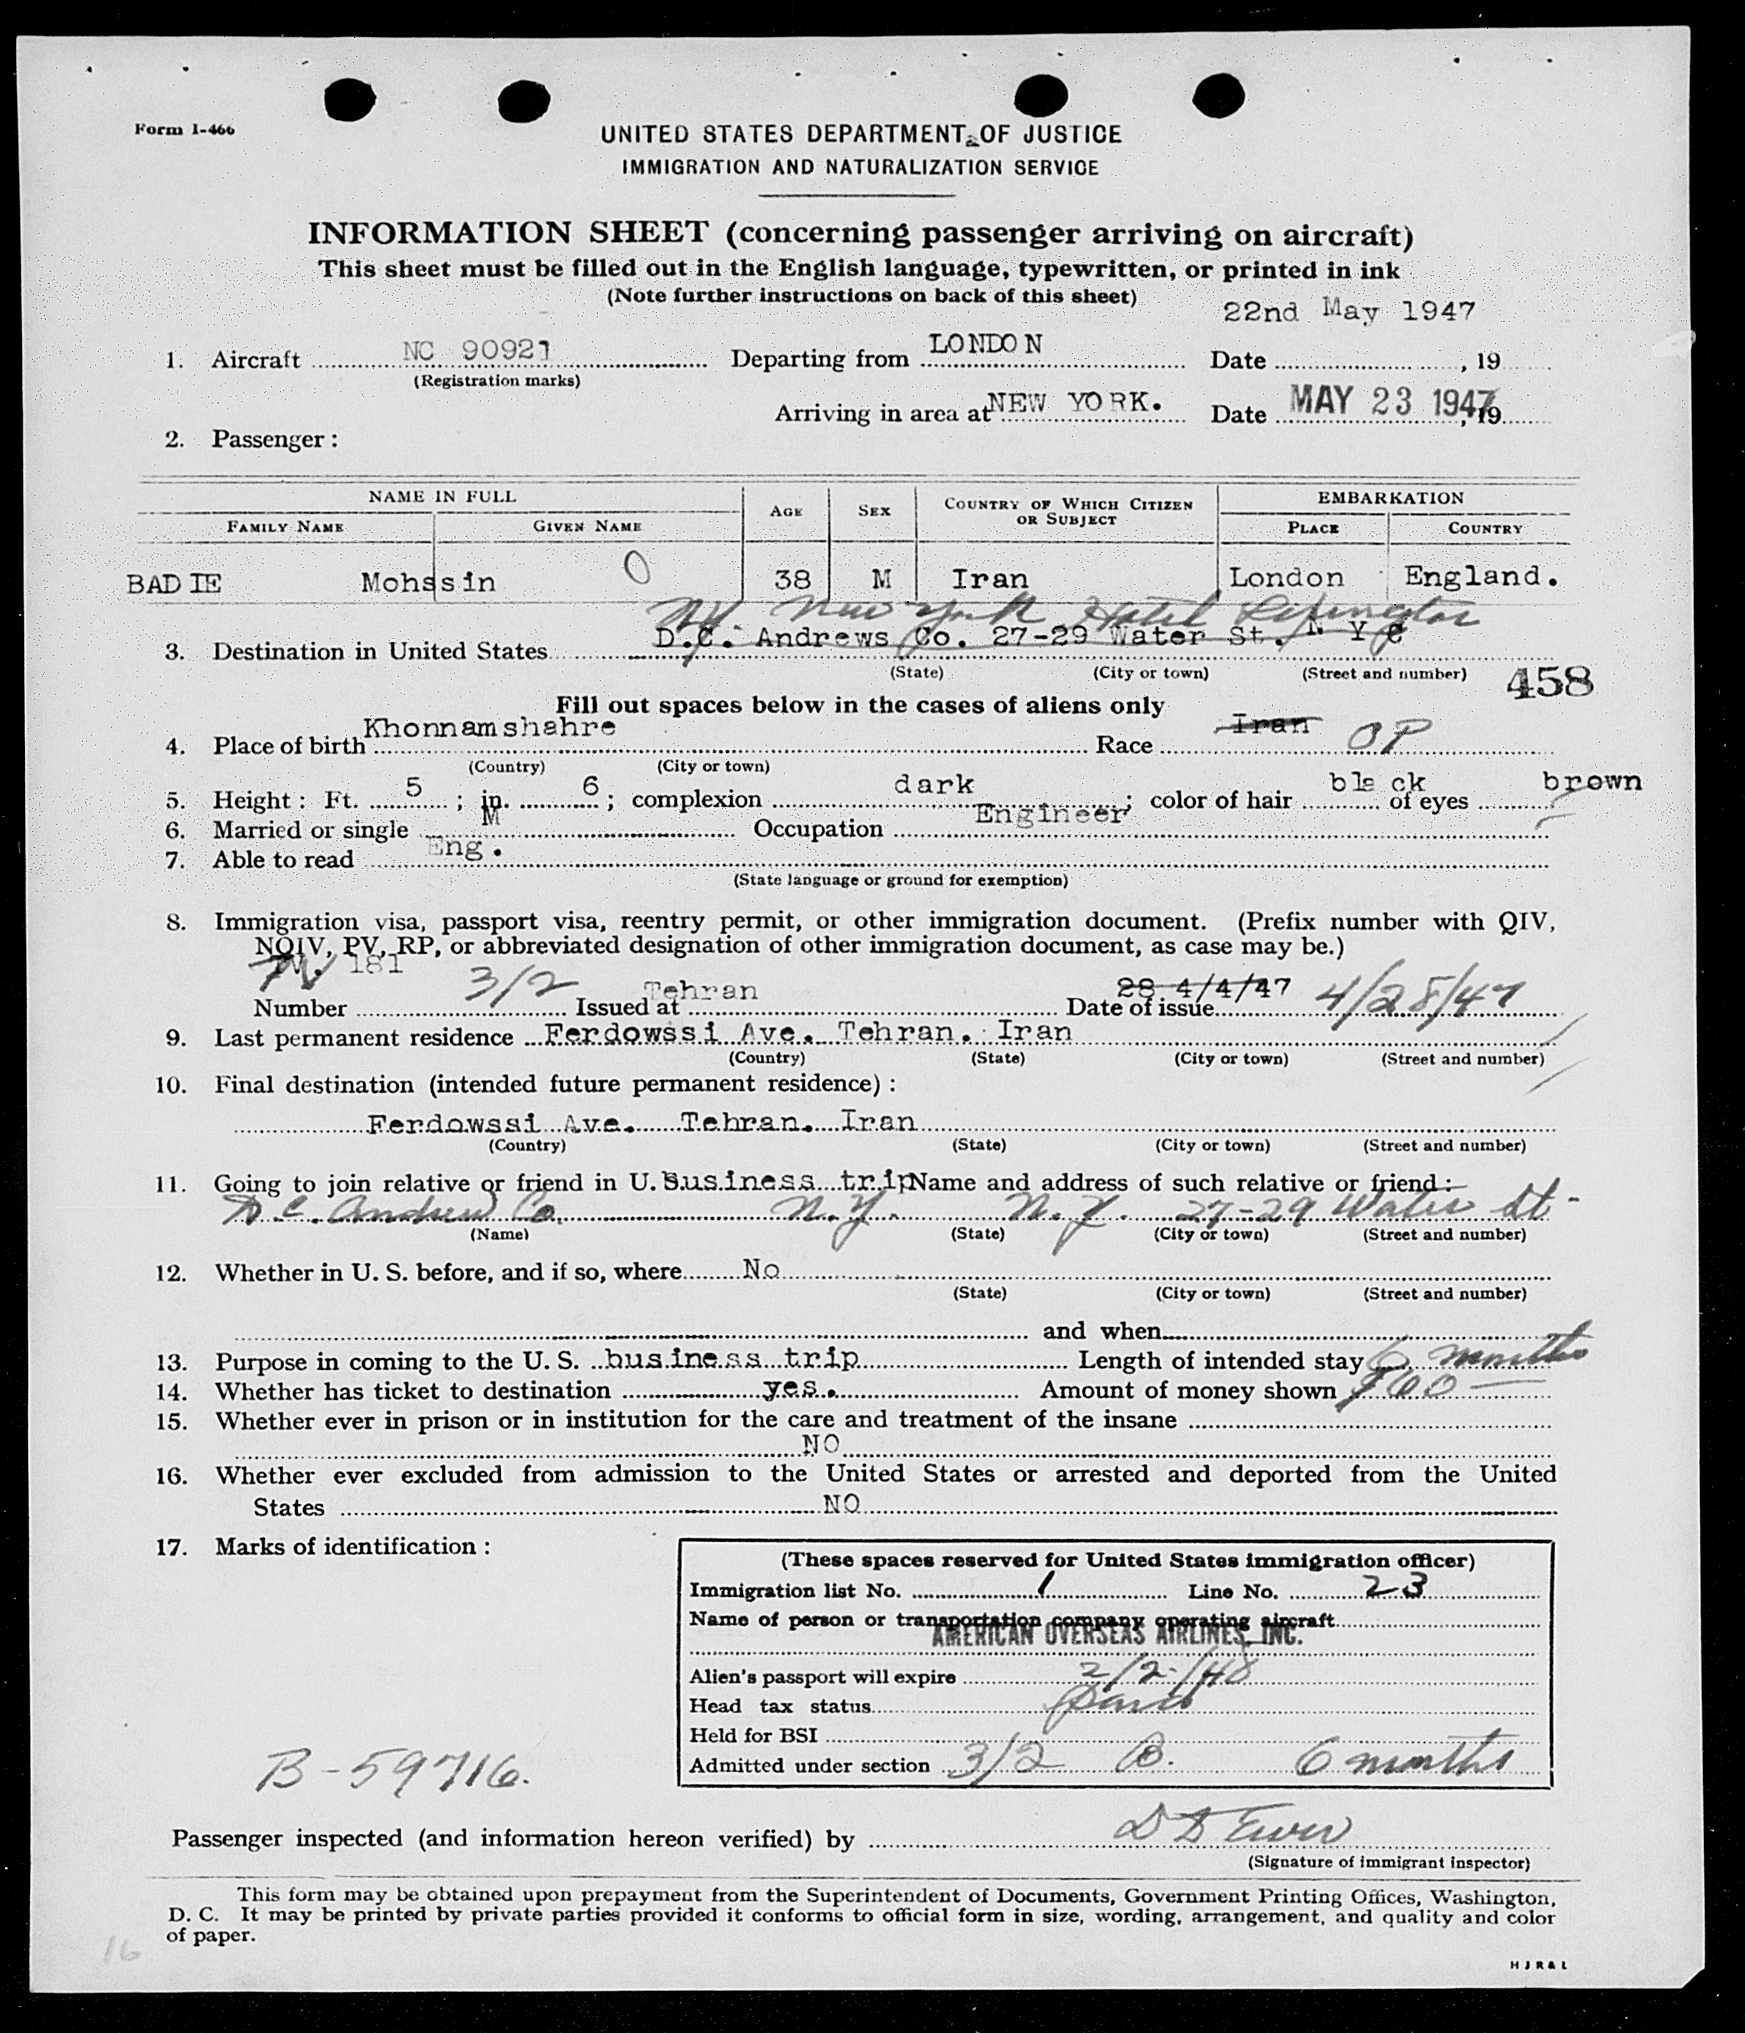 Form I-466
UNITED STATES DEPARTMENT OF JUSTICE
IMMIGRATION AND NATURALIZATION SERVICE
INFORMATION SHEET (concerning passenger arriving on aircraft)
This sheet must be filled out in the English language, typewritten, or printed in ink
(Note further instructions on back of this sheet)
22nd May 1947
1. Aircraft NC 90921 Departing from LONDON Date , 19
(Registration marks)
Arriving in area at NEW YORK. Date MAY 23 1947, 19
2. Passenger :
NAME IN FULL AGE SEX COUNTRY OF WHICH CITIZEN OR SUBJECT EMBARKATION
FAMILY NAME GIVEN NAME PLACE COUNTRY
BADIE Mohssin 0 38 M Iran London England.
N.Y. New York Hotel Lexington
3. Destination in United States D.C. Andrews Co. 27-29 Water St. N Y C
(State) (City or town) (Street and number) 458
Fill out spaces below in the cases of aliens only
4. Place of birth Khonnamshahre Race Iran OP
(Country) (City or town)
5. Height : Ft. 5 ; in. 6 ; complexion dark ; color of hair black of eyes brown
6. Married or single M Occupation Engineer
7. Able to read Eng.
(State language or ground for exemption)
8. Immigration visa, passport visa, reentry permit, or other immigration document. (Prefix number with QIV,
NQIV, PV, RP, or abbreviated designation of other immigration document, as case may be.)
PV. 181
Number 3/2 Issued at Tehran Date of issue 28 4/4/47 4/28/47
9. Last permanent residence Ferdowssi Ave. Tehran. Iran
(Country) (State) (City or town) (Street and number)
10. Final destination (intended future permanent residence) :
Ferdowssi Ave. Tehran. Iran
(Country) (State) (City or town) (Street and number)
11. Going to join relative or friend in U. Business trip Name and address of such relative or friend :
D.C. Andrew Co. N.Y. N.Y. 27-29 Water St-
(Name) (State) (City or town) (Street and number)
12. Whether in U. S. before, and if so, where No
(State) (City or town) (Street and number)
and when
13. Purpose in coming to the U. S. business trip Length of intended stay 6 months
14. Whether has ticket to destination yes. Amount of money shown
15. Whether ever in prison or in institution for the care and treatment of the insane
NO
16. Whether ever excluded from admission to the United States or arrested and deported from the United
States NO
17. Marks of identification :
(These spaces reserved for United States immigration officer)
Immigration list No. 1 Line No. 23
Name of person or transportation company operating aircraft
AMERICAN OVERSEAS AIRLINES, INC.
Alien's passport will expire 2/2/48
Head tax status
Held for BSI
Admitted under section 3/2 B. 6 months
B-59716.
Passenger inspected (and information hereon verified) by
(Signature of immigrant inspector)
This form may be obtained upon prepayment from the Superintendent of Documents, Government Printing Offices, Washington,
D. C. It may be printed by private parties provided it conforms to official form in size, wording, arrangement, and quality and color
of paper.
16
H J R & L